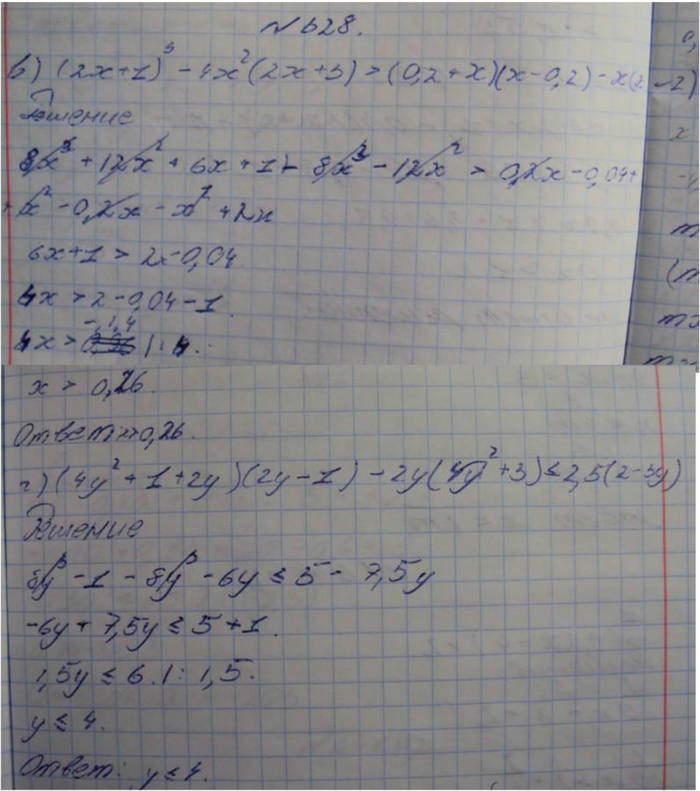 № 628.
в) (2x+1)³ - 4x²(2x+3) > (0,2+x)(x-0,2) - x(x-2)
Решение
8x³ + 12x² + 6x + 1 - 8x³ - 12x² > 0,2x - 0,04 +
+ x² - 0,2x - x² + 2x
6x+1 > 2x-0,04
4x > 2-0,04-1.
-1,4
4x > | : 4.
x > 0,26.
Ответ: 0,26.
г) (4y² + 1 + 2y)(2y - 1) - 2y(4y² + 3) ≤ 2,5(2-3y)
Решение
8y³ - 1 - 8y³ - 6y ≤ 5 - 7,5y
-6y + 7,5y ≤ 5 + 1.
1,5y ≤ 6. | : 1,5.
y ≤ 4.
Ответ: y ≤ 4.